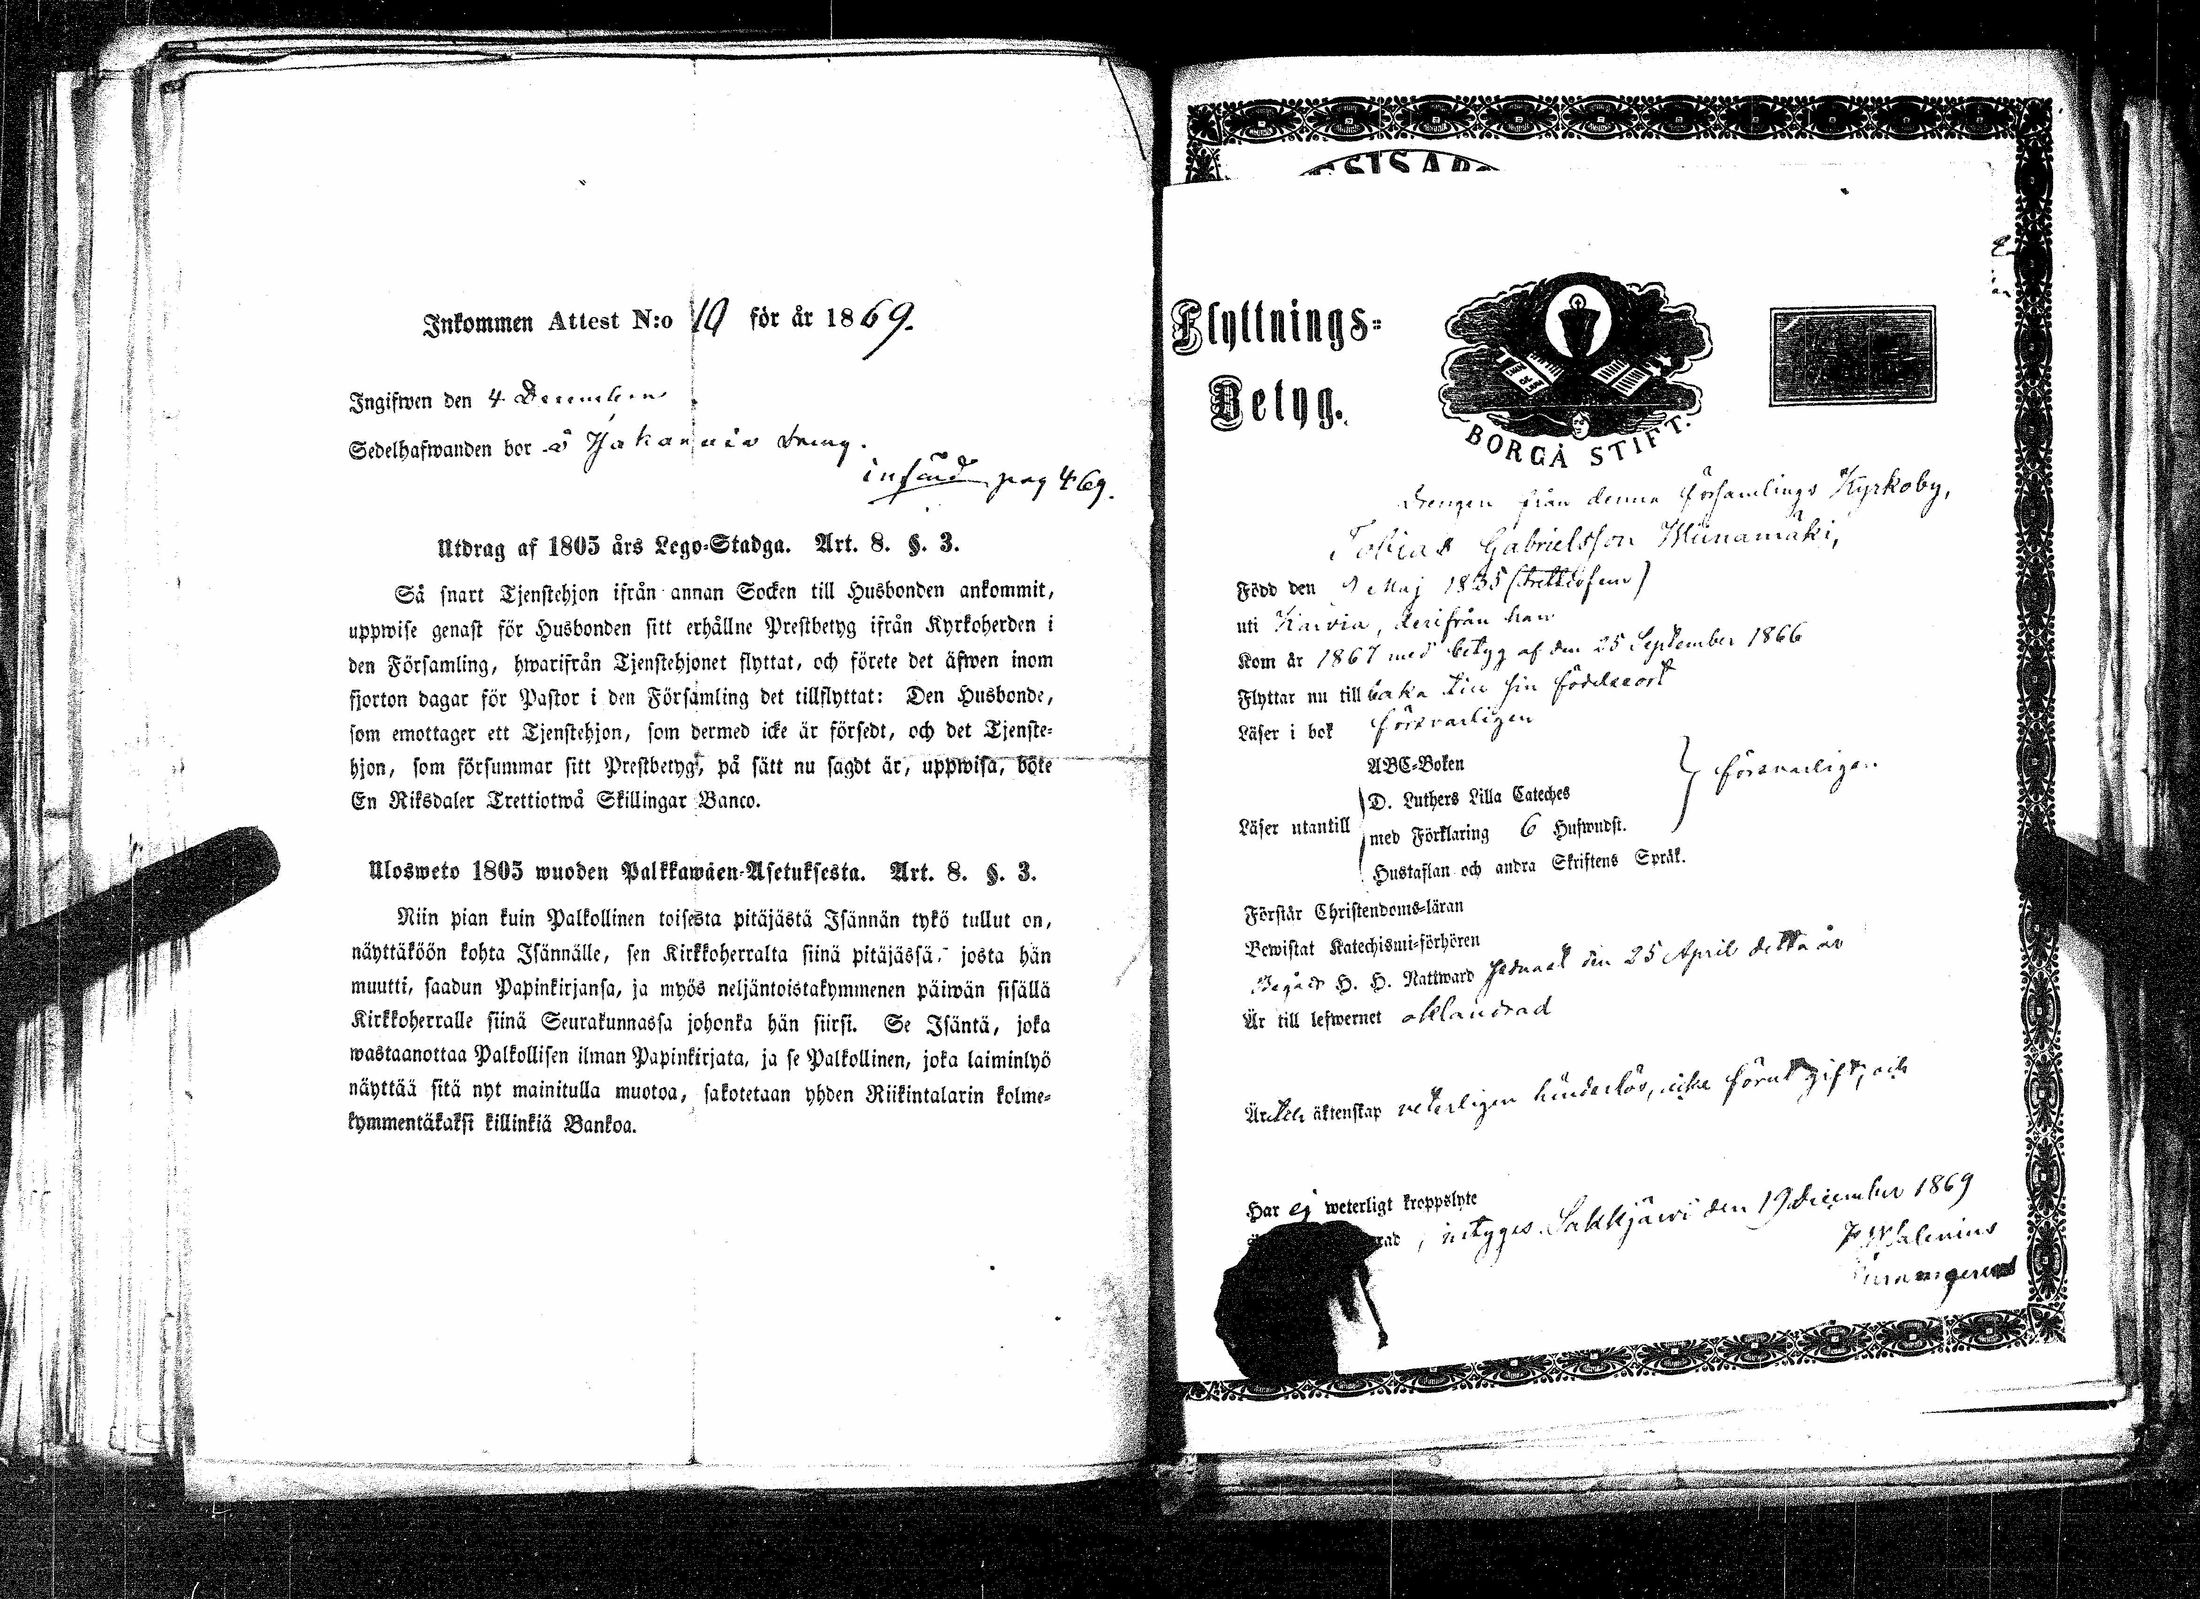 Inkommen Attest N:o 10 för år 1869.
Ingifwen den 4 December
Sedelhafwanden bor å
införd pag 469.
Utdrag af 1805 års Lego-Stadga. Art. 8. §. 3.
Så snart Tjenstehjon ifrån annan Socken till Husbonden ankommit,
uppwise genast för Husbonden sitt erhållne Prestbetyg ifrån Kyrkoherden i
den Församling, hwarifrån Tjenstehjonet flyttat, och förete det äfwen inom
fjorton dagar för Pastor i den Församling det tillflyttat: Den Husbonde,
som emottager ett Tjenstehjon, som dermed icke är försedt, och det Tjenste-
hjon, som försummar sitt Prestbetyg, på sätt nu sagdt är, uppwisa, böte
En Riksdaler Trettiotwå Skillingar Banco.
Ulosweto 1805 wuoden Palkkawäen-Asetuksesta. Art. 8. §. 3.
Niin pian kuin Palkollinen toisesta pitäjästä Isännän tykö tullut on,
näyttäköön kohta Isännälle, sen Kirkkoherralta siinä pitäjässä, josta hän
muutti, saadun Papinkirjansa, ja myös neljäntoistakymmenen päiwän sisällä
Kirkkoherralle siinä Seurakunnassa johonka hän siirsi. Se Isäntä, joka
wastaanottaa Palkollisen ilman Papinkirjata, ja se Palkollinen, joka laiminlyö
näyttää sitä nyt mainitulla muotoa, sakotetaan yhden Riikintalarin kolme-
kymmentäkaksi killinkiä Bankoa.
Flyttnings-
Betyg.
BORGÅ STIFT.
Drengen från denna församlings Kyrkoby,
Tobias Gabrielsson Munamäki,
Född den 9 Maj 1835 (trettiofem)
uti Karvia, derifrån han
Kom år 1867 med betyg af den 25 September 1866
Flyttar nu till baka till sin födelseort
Läser i bok försvarligen
ABC-Boken
D. Luthers Lilla Cateches
Läser utantill med Förklaring 6 Hufwudst. försvarligen
Hustaflan och andra Skriftens Språk.
Förstår Christendoms-läran
Bewistat Katechismi-förhören
Begått H. H. Nattward sednast den 25 April detta år
Är till lefwernet oklandrad
Är till äktenskap veterligen hinderlös, icke förut gift, och
Har ej weterligt kroppslyte
rad, betygas. Sakkjärwi den 19 December 1869
Walenius